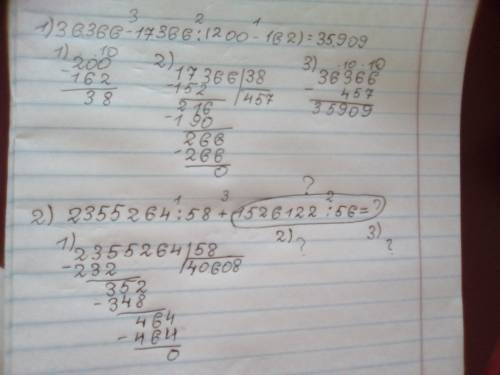 3 2 1
1) 36366 - 17366 : (200 - 162) = 35909
1) 200 2) 17366 | 38 3) 36366
- 162 - 152 | 457 - 457
38 216 35909
- 190
266
- 266
0
?
1 3 2
2) 2355264 : 58 + 1526122 : 56 = ?
1) 2355264 | 58 2) ? 3) ?
- 232 | 40608
352
- 348
464
- 464
0